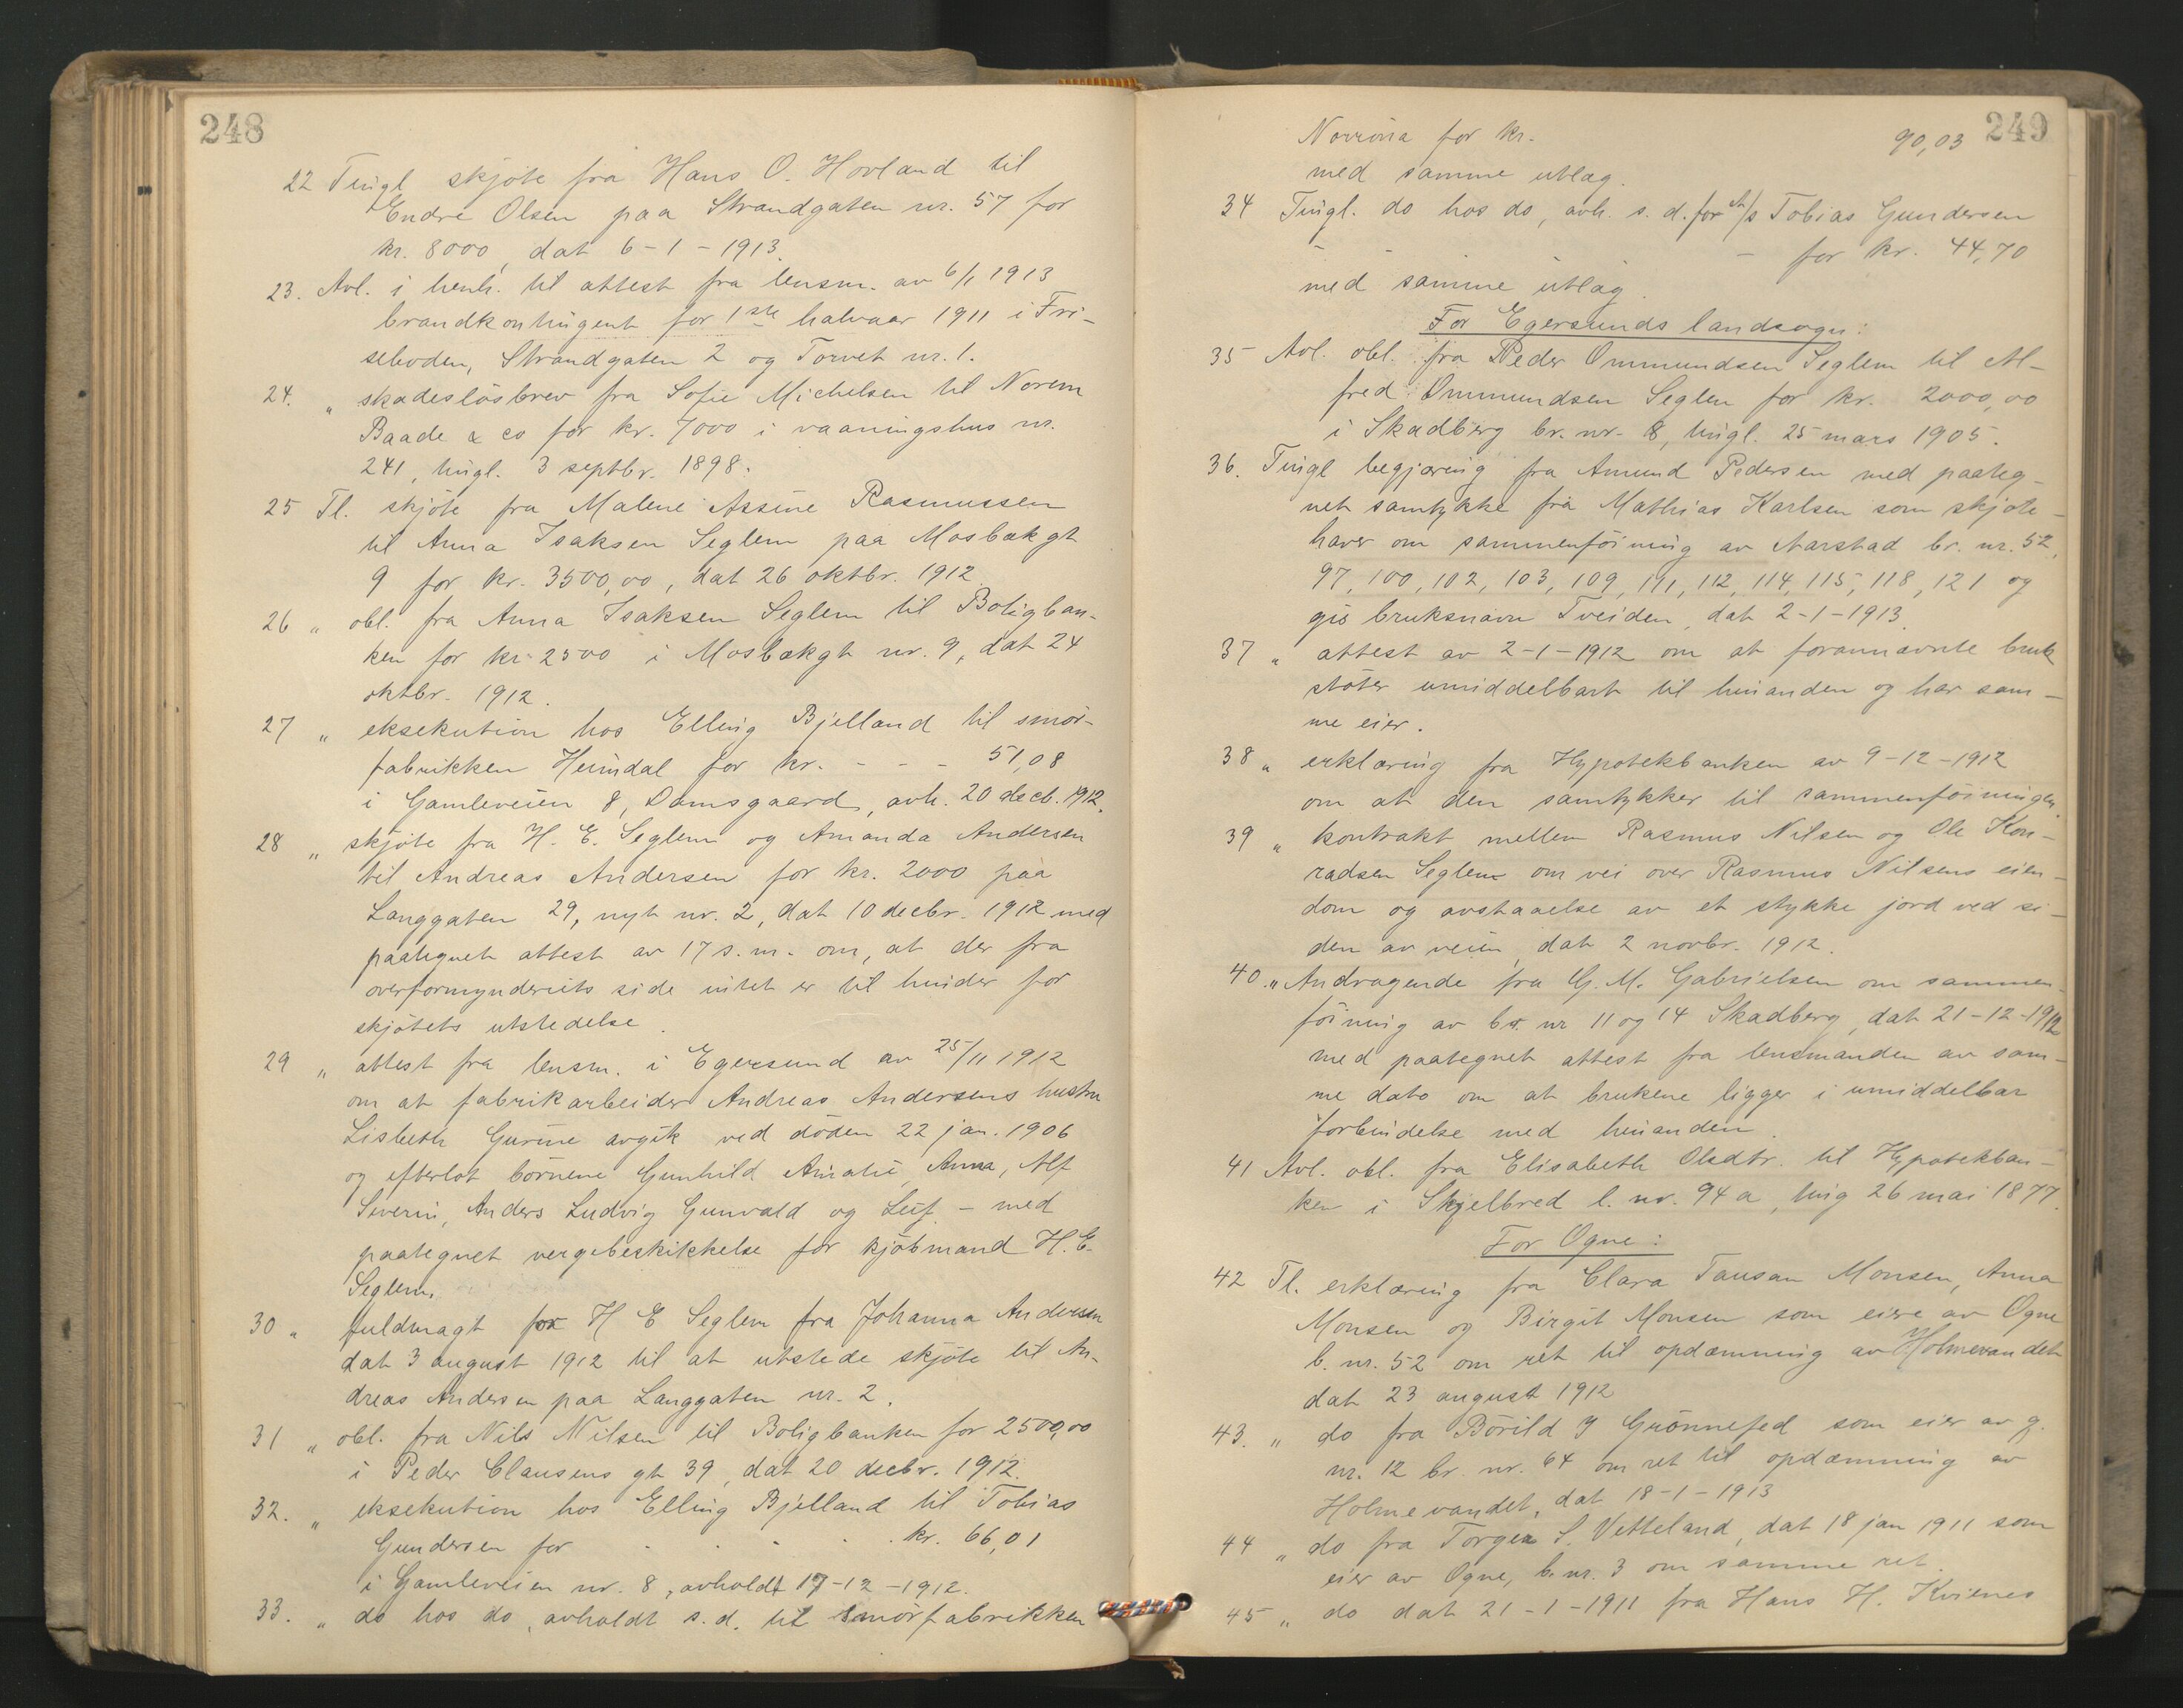 248
22 Tingl skjøte fra Hans O. Hovland til
Endre Olsen paa Strandgaten nr. 57 for
kr. 8000, dat 6-1-1913.
23. Avl. i henh. til attest fra lensm. av 6/1 1913
brandkontingent for 1ste halvaar 1911 i Fri-
seboden, Strandgaten 2 og Torvet nr. 1.
24. " skadesløsbrev fra Sofie Michelsen til Norem
Baade & co for kr. 7000 i vaaningshus nr.
241, tingl. 3 septbr. 1898.
25 Tl. skjøte fra Malene Assine Rasmussen
til Anna Isaksen Seglem paa Mosbækgt
9 for kr. 3500,00, dat 26 oktbr. 1912.
26 " obl. fra Anna Isaksen Seglem til Boligban-
ken for kr 2500 i Mosbækgt nr. 9, dat 24
oktbr. 1912.
27 " eksekution hos Elling Bjelland til smör-
fabrikken Heimdal for kr. - - - 51,08
i Gamleveien 8, Damsgaard, avh. 20 decb. 1912.
28 " skjøte fra H. E. Seglem og Amanda Andersen
til Andreas Andersen for kr. 2000 paa
Langgaten 29, nyt nr. 2, dat 10 decbr. 1912 med
paategnet attest av 17 s. m. om, at der fra
overformynderiets side intet er til hinder for
skjøtets utstedelse.
29 " attest fra lensm. i Egersund av 25/11 1912
om at fabrikarbeider Andreas Andersens hustru
Lisbeth Gurine avgik ved döden 22 jan. 1906
og efterlot börnene Gunhild Amalie, Anna, Alf
Severin, Anders Ludvig Gunvald og Leif - med
paategnet vergebeskikkelse for kjöbmand H. E.
Seglem.
30 " fuldmagt for H E Seglem fra Johanna Andersen
dat 3 august 1912 til at utstede skjøte til An-
dreas Andersen paa Langgaten nr. 2.
31 " obl. fra Nils Nilsen til Boligbanken for 2500,00
i Peder Clausens gt 39, dat 20 decbr. 1912.
32. " eksekution hos Elling Bjelland til Tobias
Gundersen for . . . . kr. 66,01
i Gamleveien nr. 8, avholdt 17-12-1912.
33. " do hos do, avholdt s. d. til Smörfabrikken
249
Norröna for kr. 90,03
med samme utlæg.
34 Tingl. do hos do, avh. s. d. for A/s Tobias Gundersen
- - - for kr. 44,70
med samme utlæg.
For Egersunds landsogn:
35 Avl. obl. fra Peder Ommundsen Seglem til Al-
fred Ommundsen Seglem for kr. 2000,00
i Skadberg br. nr. 8, tingl. 25 mars 1905.
36. Tingl begjæring fra Amund Pedersen med paateg-
net samtykke fra Mathias Karlsen som skjøte-
haver om sammenföining av Aarstad br. nr. 52,
97, 100, 102, 103, 109, 111, 112, 114, 115, 118, 121 og
gis bruksnavn Tveiden, dat 2-1-1913.
37 " attest av 2-1-1912 om at forannævnte bruk
støter umiddelbart til hinanden og har sam-
me eier.
38 " erklæring fra Hypotekbanken av 9-12-1912
om at den samtykker til sammenföiningen.
39 " kontrakt mellem Rasmus Nilsen og Ole Kon-
radsen Seglem om vei over Rasmus Nilsens eien-
dom og avstaaelse av et stykke jord ved si-
den av veien, dat 2 novbr. 1912.
40. " Andragende fra G. M. Gabrielsen om sammen-
föining av br. nr 11 og 14 Skadberg, dat 21-12-1912
med paategnet attest fra lensmanden av sam-
me dato om at brukene ligger i umiddelbar
forbindelse med hinanden.
41 Avl. obl. fra Elisabeth Olsdtr. til Hypotekban-
ken i Skjelbred l. nr. 94 a, ting 26 mai 1877.
For Ogne:
42 Tl. erklæring fra Clara Tausan Monsen, Anna
Monsen og Birgit Monsen som eiere av Ogne
b. nr. 52 om ret til opdæmning av Holmevandet
dat 23 august 1912
43. " do fra Börild Grönnefed som eier av g.
nr. 12 br. nr. 64 om ret til opdæmning av
Holmevandet, dat 18-1-1913
44 " do fra Torger S. Vetteland, dat 18 jan 1911 som
eier av Ogne, b. nr. 3 om samme ret.
45 " do dat 21-1-1911 fra Hans H. Kvienes